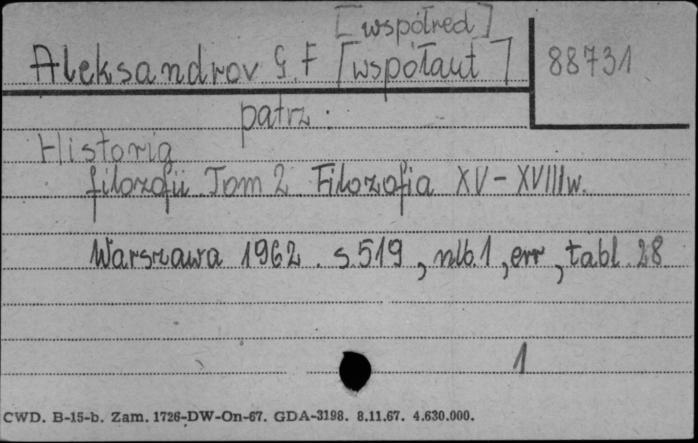 [współred]
Aleksandrov G. F [współaut] 88731
patrz:
Historia
filozofii Tom 2 Filozofia XV-XVIII w.
Warszawa 1962. s. 519, nlb. 1, err, tabl. 28
1
CWD. B-15-b. Zam. 1726-DW-On-67. GDA-3198. 8.11.67. 4.630.000.